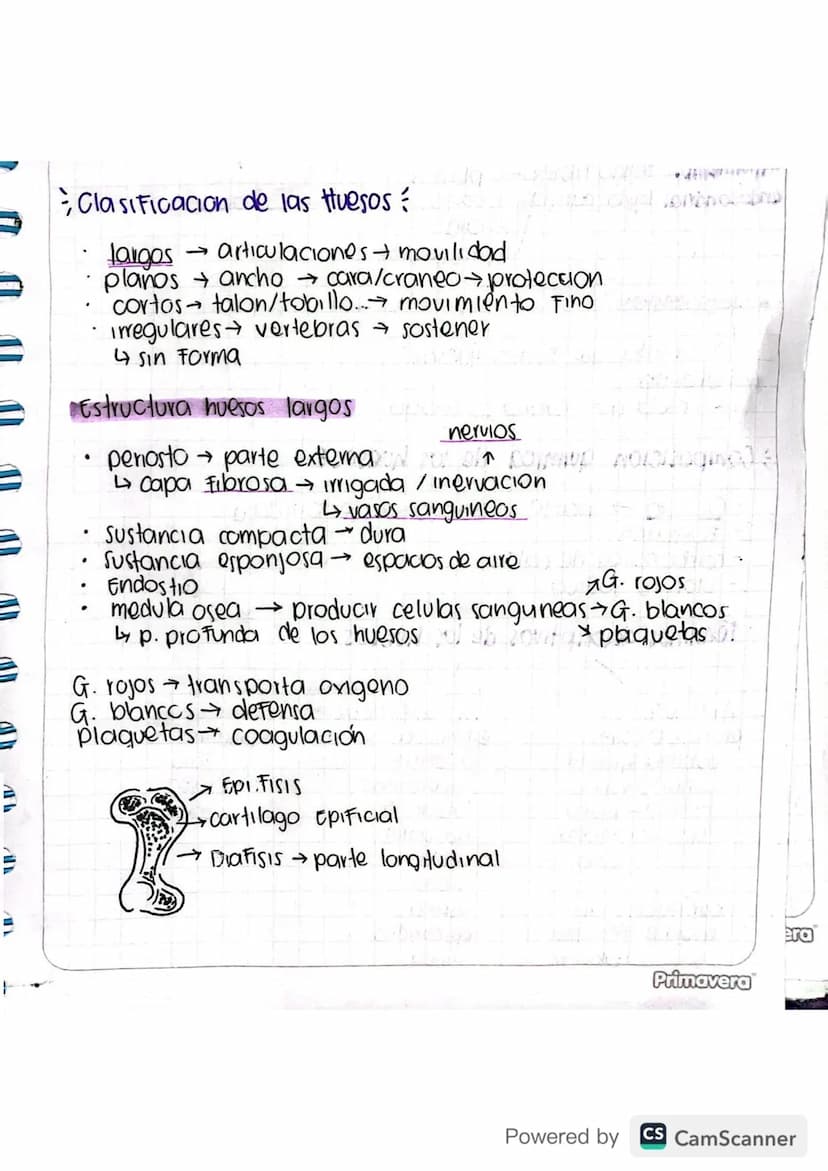 Clasificacion de las Huesos
· largos → articulaciones → movilidad
· planos → ancho → cara/craneo → proteccion
· cortos → talon/tobillo... → movimiento Fino
· irregulares → vertebras → sostener
↳ sin Forma
Estructura huesos largos
nervios
· periosto → parte externa ↑
↳ capa Fibrosa → irrigada / inervacion
↳ vasos sanguineos
· sustancia compacta → dura
· sustancia esponjosa → espacios de aire
· Endostio ↗ G. rojos
· medula osea → producir celulas sanguneas → G. blancos
↳ p. profunda de los huesos ↘ plaquetas
G. rojos → transporta oxigeno
G. blancos → defensa
plaquetas → coagulación
→ Epi.Fisis
→ cartilago Epificial
→ Diafisis → parte longitudinal
era
Primavera
Powered by CS CamScanner